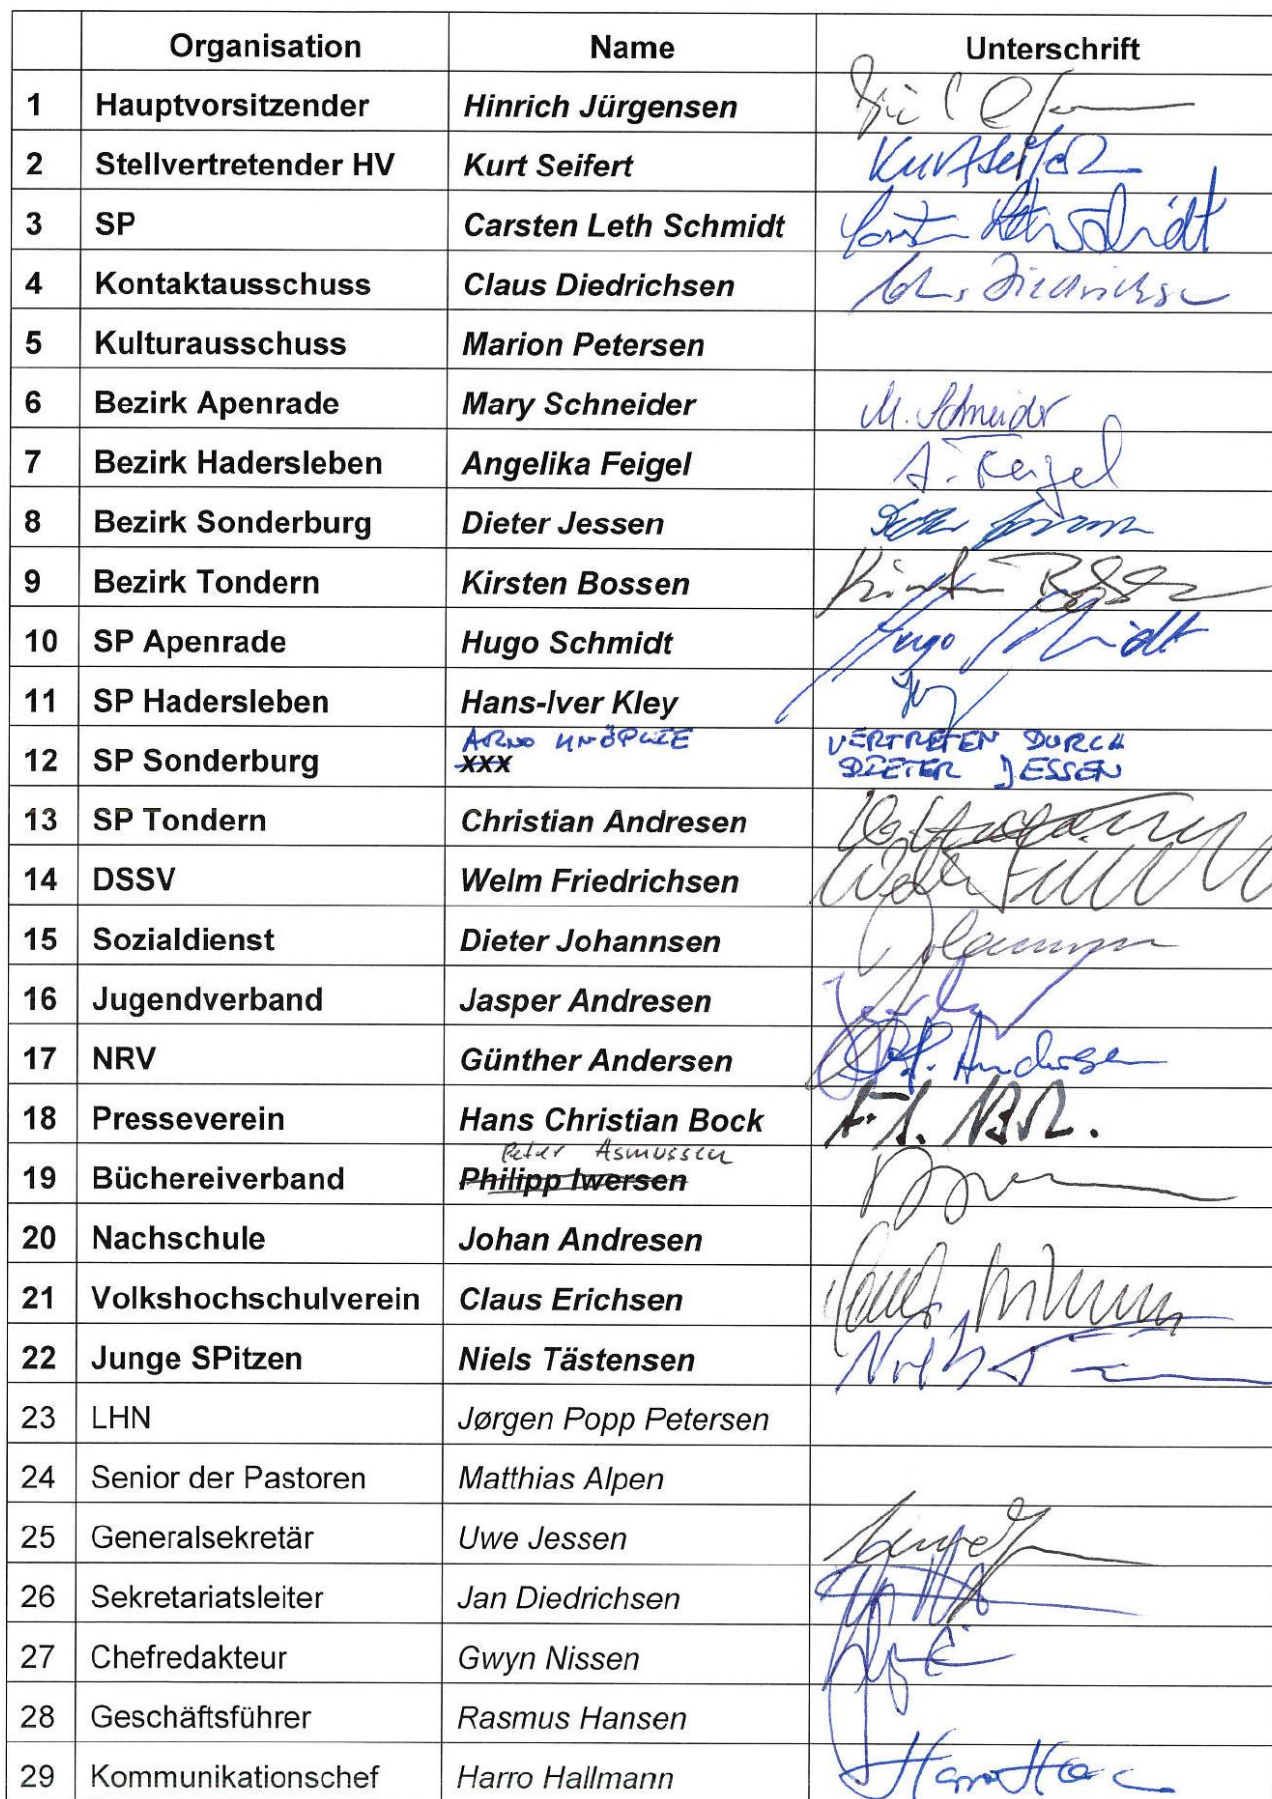 Organisation Name Unterschrift
1 Hauptvorsitzender Hinrich Jürgensen
2 Stellvertretender HV Kurt Seifert Kurt Seifert
3 SP Carsten Leth Schmidt Carsten Leth Schmidt
4 Kontaktausschuss Claus Diedrichsen Claus Diedrichsen
5 Kulturausschuss Marion Petersen
6 Bezirk Apenrade Mary Schneider M. Schneider
7 Bezirk Hadersleben Angelika Feigel A. Feigel
8 Bezirk Sonderburg Dieter Jessen Dieter Jessen
9 Bezirk Tondern Kirsten Bossen Kirsten Bossen
10 SP Apenrade Hugo Schmidt Hugo Schmidt
11 SP Hadersleben Hans-Iver Kley
ARNO KNÖPFLE VERTRETEN DURCH
12 SP Sonderburg xxx DIETER JESSEN
13 SP Tondern Christian Andresen
14 DSSV Welm Friedrichsen
15 Sozialdienst Dieter Johannsen
16 Jugendverband Jasper Andresen
17 NRV Günther Andersen G. Andersen
18 Presseverein Hans Christian Bock
Peter Asmussen
19 Büchereiverband Philipp Iwersen
20 Nachschule Johan Andresen
21 Volkshochschulverein Claus Erichsen
22 Junge SPitzen Niels Tästensen
23 LHN Jørgen Popp Petersen
24 Senior der Pastoren Matthias Alpen
25 Generalsekretär Uwe Jessen
26 Sekretariatsleiter Jan Diedrichsen
27 Chefredakteur Gwyn Nissen
28 Geschäftsführer Rasmus Hansen
29 Kommunikationschef Harro Hallmann